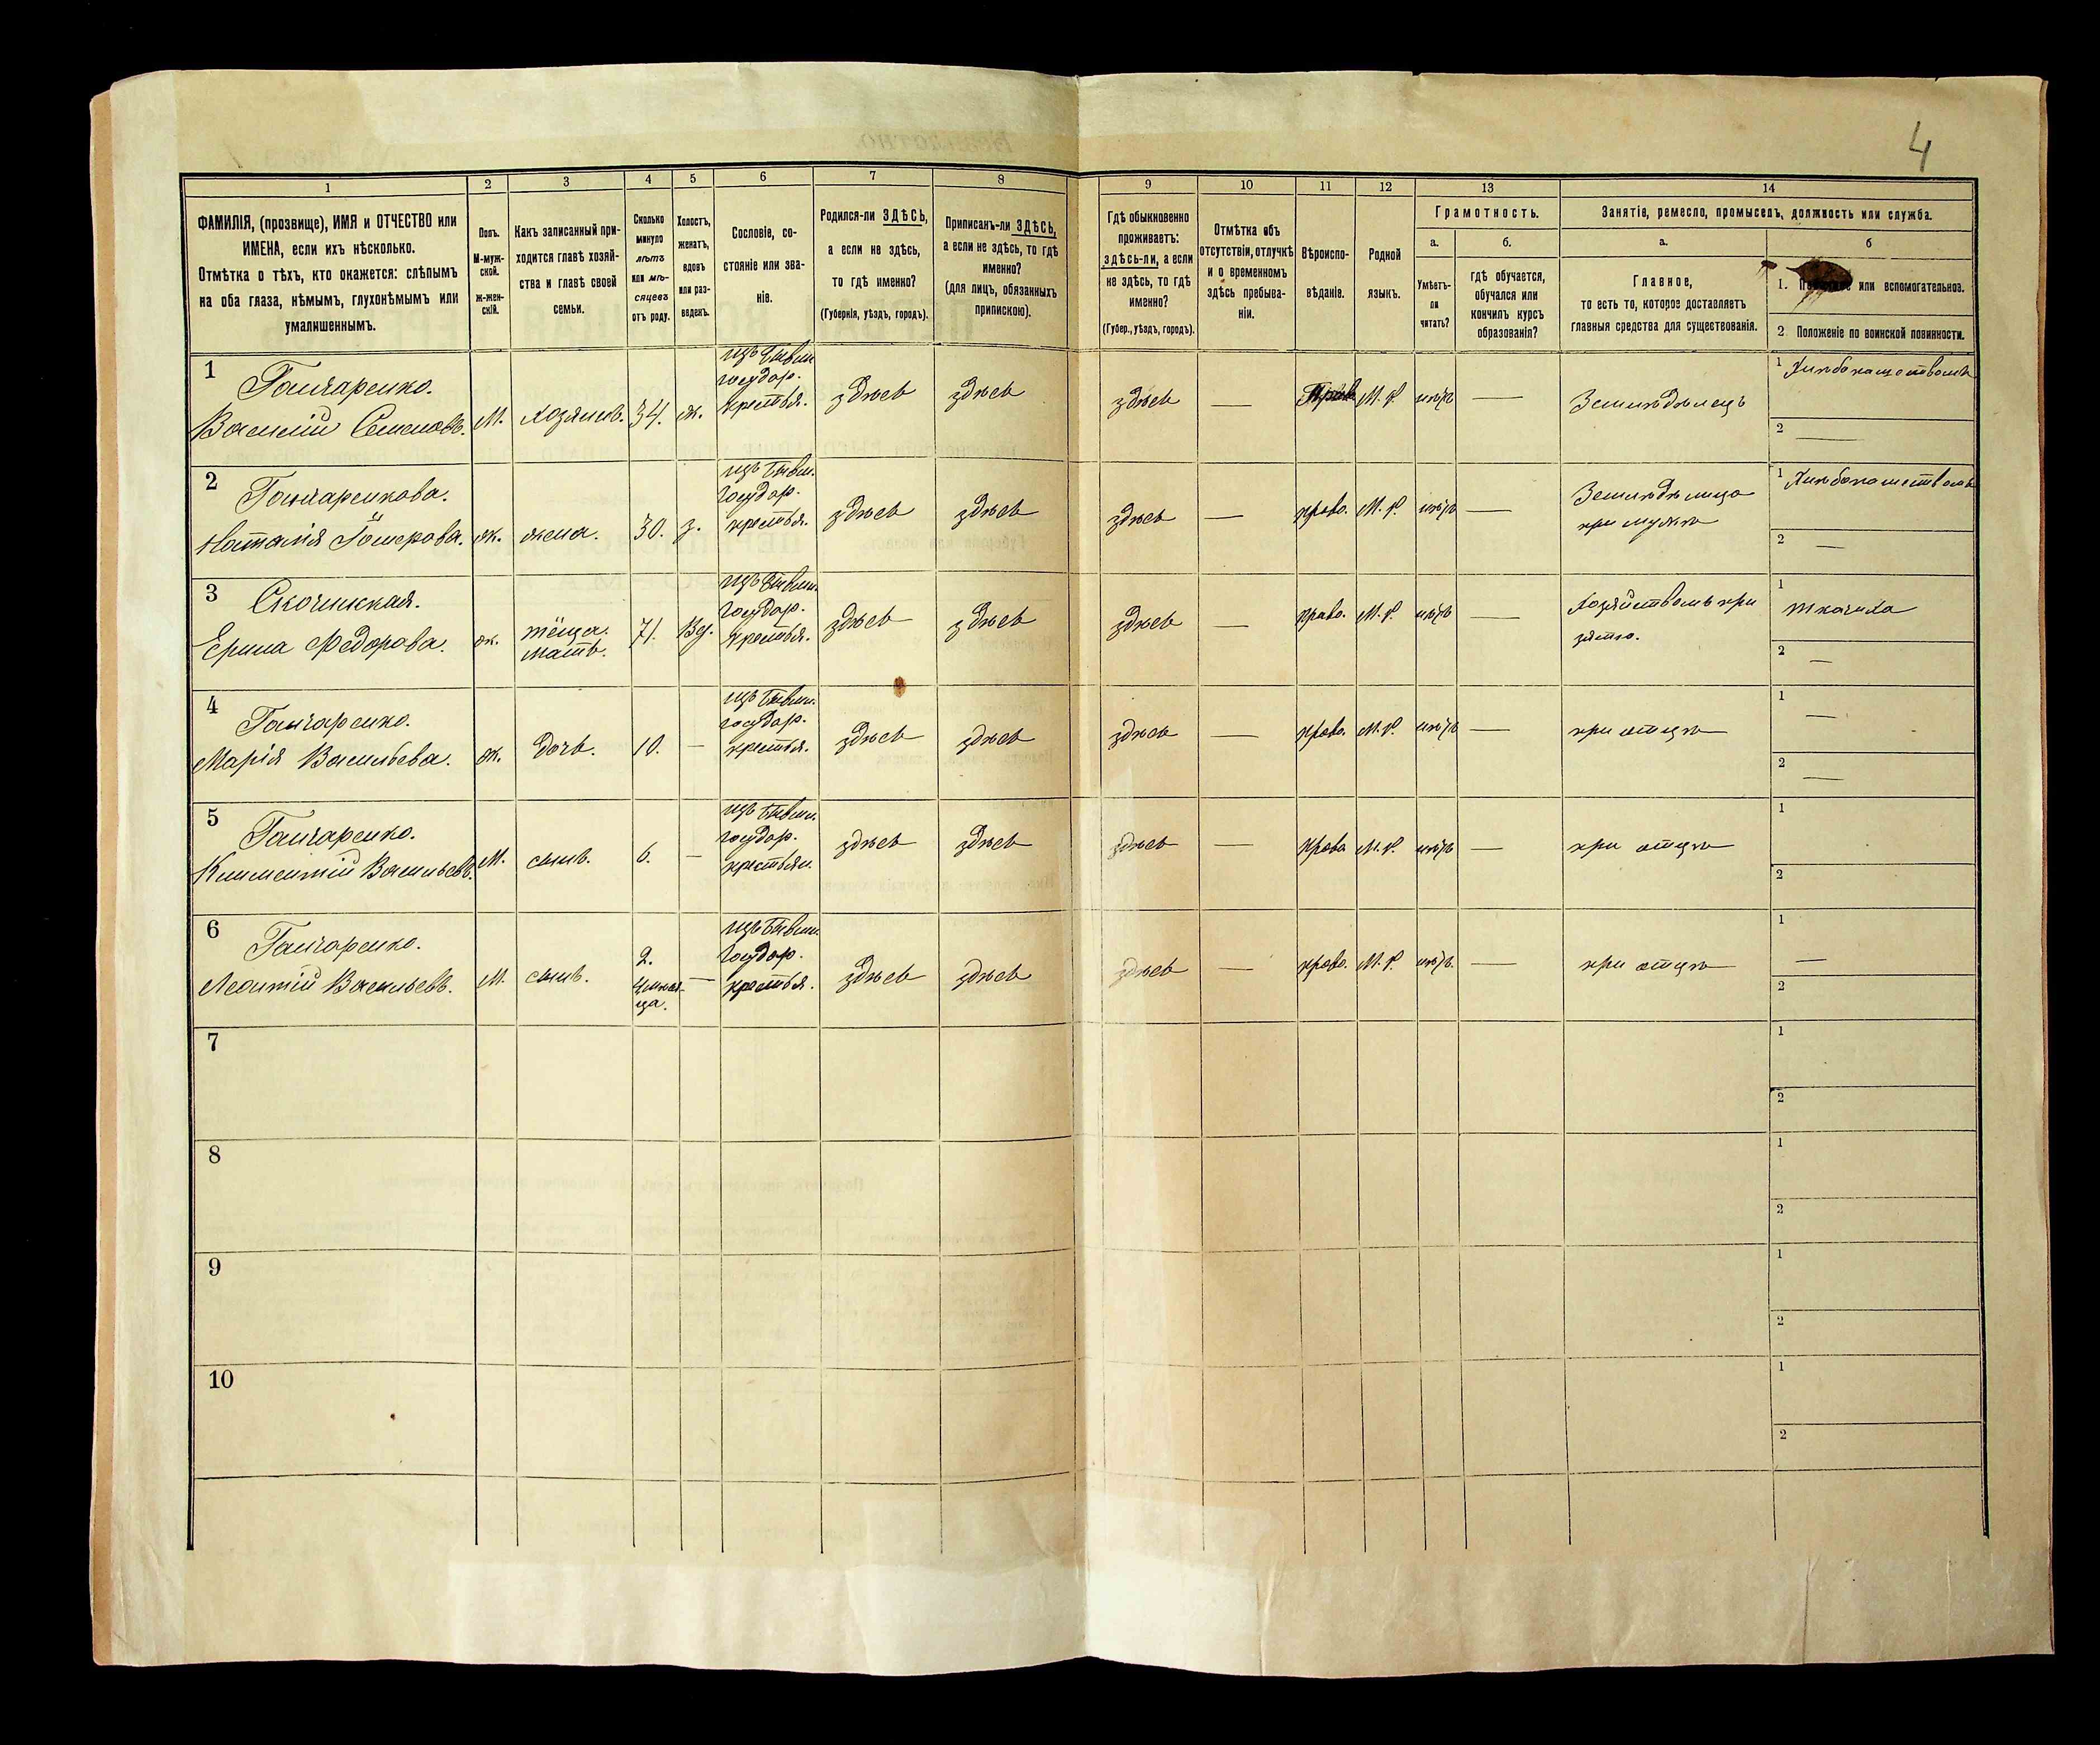 4
1 2 3 4 5 6 7 8 9 10 11 12 13 14
ФАМИЛІЯ, (прозвище), ИМЯ и ОТЧЕСТВО или
ИМЕНА, если ихъ нѣсколько.
Отмѣтка о тѣхъ, кто окажется: слѣпымъ
на оба глаза, нѣмымъ, глухонѣмымъ или
умалишеннымъ.
Полъ.
М-муж-
ской.
ж-жен-
скій.
Какъ записанный при-
ходится главѣ хозяй-
ства и главѣ своей
семьи.
Сколько
минуло
лѣтъ
или мѣ-
сяцевъ
отъ роду.
Холостъ,
женатъ,
вдовъ
или раз-
веденъ.
Сословіе, со-
стояніе или зва-
ніе.
Родился-ли ЗДѢСЬ,
а если не здѣсь,
то гдѣ именно?
(Губернія, уѣздъ, городъ).
Приписанъ-ли ЗДѢСЬ,
а если не здѣсь, то гдѣ
именно?
(для лицъ, обязанныхъ
припискою).
Гдѣ обыкновенно
проживаетъ:
здѣсь-ли, а если
не здѣсь, то гдѣ
именно?
(Губер., уѣздъ, городъ).
Отмѣтка объ
отсутствіи, отлучкѣ
и о временномъ
здѣсь пребыва-
ніи.
Вѣроиспо-
вѣданіе.
Родной
языкъ.
Грамотность.
а.
Умѣетъ-
ли
читать?
б.
гдѣ обучается,
обучался или
кончилъ курсъ
образованія?
Занятіе, ремесло, промыселъ, должность или служба.
а.
Главное,
то есть то, которое доставляетъ
главныя средства для существованія.
б
1. или вспомогательное.
2 Положеніе по воинской повинности.
1
Ганчаренко.
Василій Семеновъ.
М.
хозяинъ.
34.
ж.
изъ бывш.
государ.
крестья.
здѣсь
здѣсь
здѣсь
—
Прав
М. Р.
нѣтъ
—
Земледѣлецъ
1
2 —
2
Ганчаренкова.
Наталія
ж.
жена.
30.
з.
изъ бывш.
государ.
крестья.
здѣсь
здѣсь
здѣсь
—
право.
М. Р.
нѣтъ
—
Земледѣлица
при мужѣ
1
2 —
3
Ерина Федорова.
ж.
тёща.
мать.
71.
Вд.
изъ бывш.
государ.
крестья.
здѣсь
здѣсь
здѣсь
—
право.
М. Р.
нѣтъ
—
Хозяйствомъ при
зятю.
1
ткачиха
2 —
4
Ганчаренко.
Марія Васильева.
ж.
дочь.
10.
—
изъ бывш.
государ.
крестья.
здѣсь
здѣсь
здѣсь
—
право.
М. Р.
нѣтъ
—
при отцѣ
1 —
2 —
5
Ганчаренко.
Климентій Васильевъ.
М.
сынъ.
6.
—
изъ бывш.
государ.
крестьян.
здѣсь
здѣсь
здѣсь
—
Право
М. Р.
нѣтъ
—
при отцѣ
1
2
6
Ганчаренко.
Леонтій Васильевъ.
М.
сынъ.
2.
ца.
—
изъ бывш.
государ.
крестья.
здѣсь
здѣсь
здѣсь
—
право.
М. Р.
нѣтъ.
—
при отцѣ
1 —
2
7
1
2
8
1
2
9
1
2
10
1
2